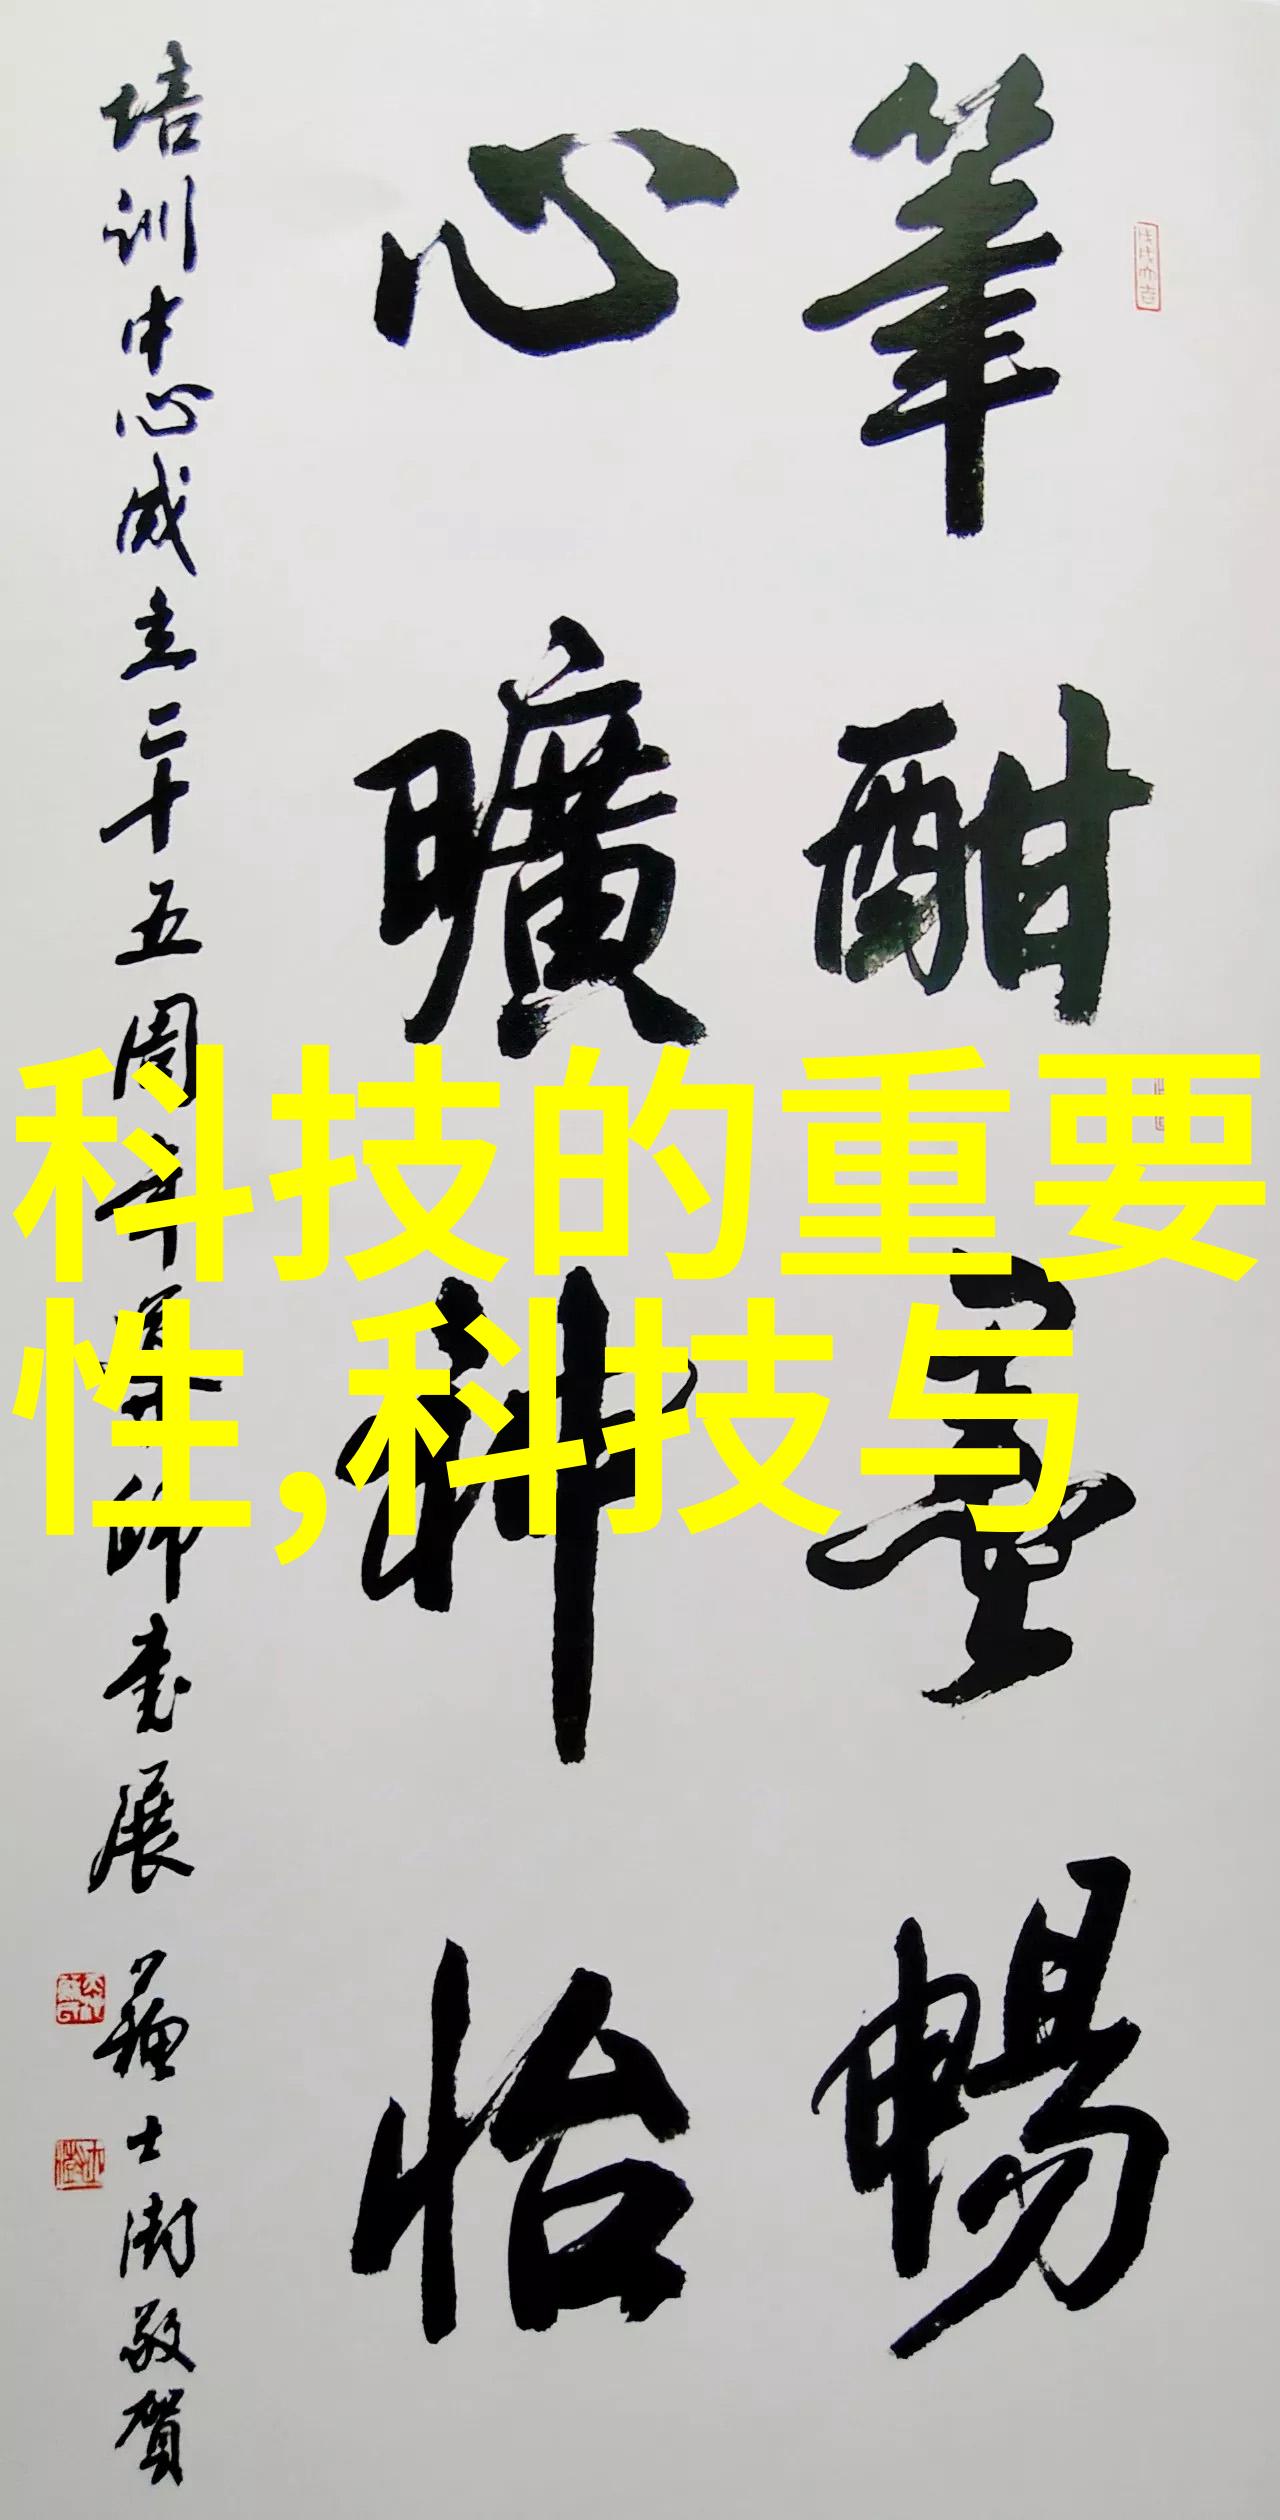 筆酣墨暢
心曠神怡
培训中心成立二十五周年
师书展
苏士澍敬贺
科技的重要
性,科技与